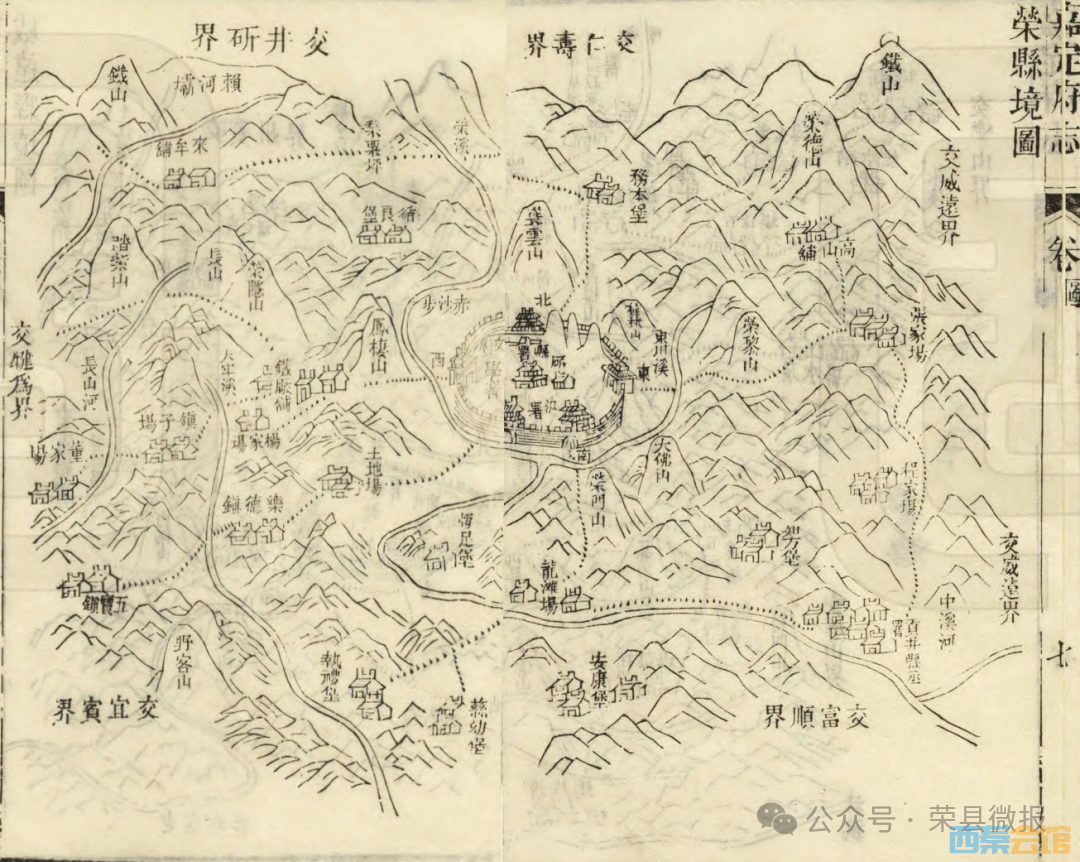 嘉定府志
卷
圖
七
榮縣境圖
交仁壽界
交井研界
交威遠界
交威遠界
交富順界
交宜賓界
交犍為界
鐵山
榮德山
務本堡
高山鋪
張家場
榮黎山
東川溪
桂林山
葉雲山
北
縣署
東
汛署
南
西
學署
大佛山
榮門山
程家場
智方堡
中溪河
貢井縣丞署
龍滩場
安康堡
榮溪
梨栗坪
賴河壩
鐵山
來牟鋪
循良堡
赤沙步
踏柴山
長山
榮隱山
鳳棲山
鐵廠鋪
楊家場
長山河
鎮子場
董家場
土地場
樂德鎮
五寶鎮
野客山
執禮堡
慈幼堡
公众号·荣县微报
西秦会馆